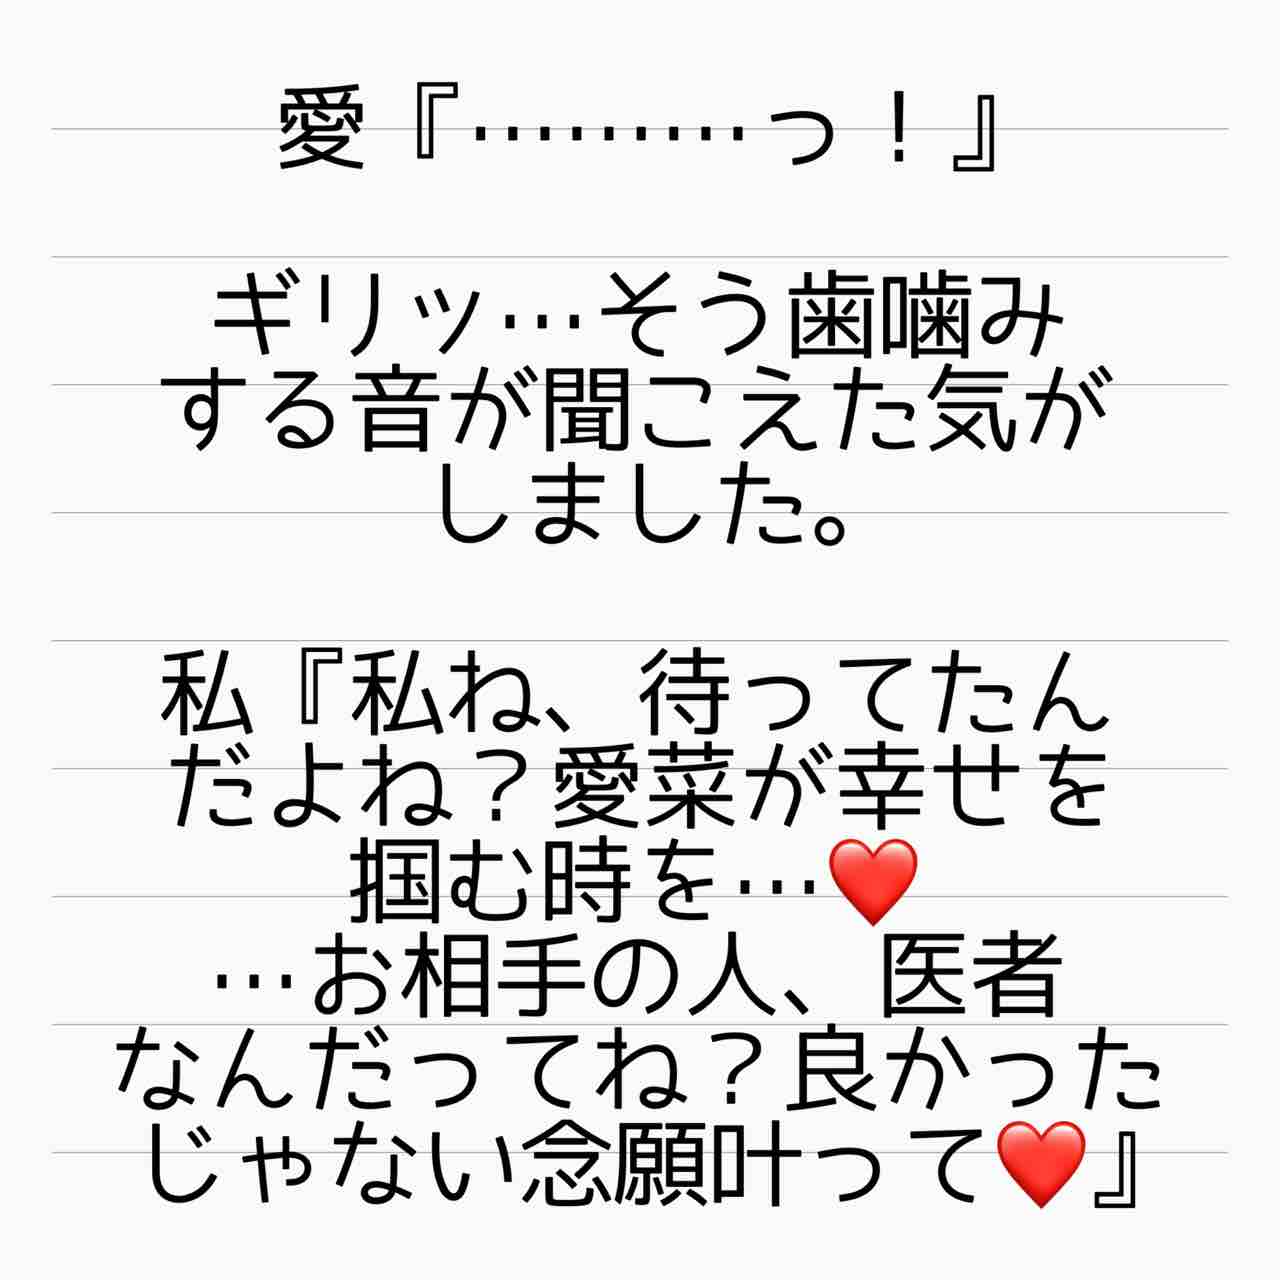 愛『………っ！』
ギリッ…そう歯噛み
する音が聞こえた気が
しました。
私『私ね、待ってたん
だよね？愛菜が幸せを
掴む時を…❤️
…お相手の人、医者
なんだってね？良かった
じゃない念願叶って❤️』